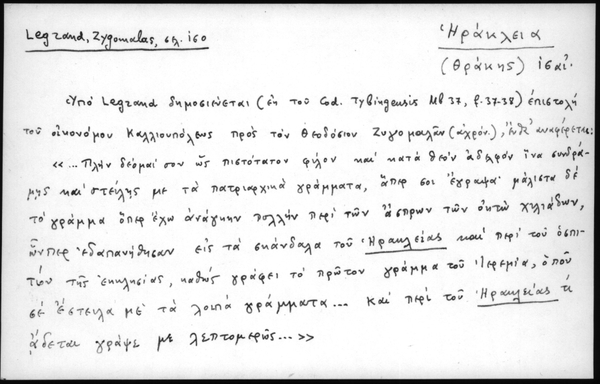 Legrand, Zygomalas, σελ. ιεο
Ἡράκλεια
(Θράκης) ις αἰ.
Ὑπό Legrand δημοσιεύεται (ἐκ τοῦ Cod. Tybingensis Mb 37, f. 37-38) ἐπιστολή
τοῦ οἰκονόμου Καλλιουπόλεως πρὸς τὸν Θεοδόσιον Ζυγομαλᾶν (ἀχρόν.), ἔνθ' ἀναφέρεται:
«... Πλήν δέομαί σου ὡς πιστότατον φίλον καί κατά θεόν ἀδελφόν ἵνα συνδρά-
μῃς καί στείλῃς με τά πατριαρχικά γράμματα, ἅπερ σοι ἔγραψα· μάλιστα δέ
τό γράμμα ὅπερ ἔχω ἀνάγκην πολλήν περί τῶν ἄσπρων τῶν ὀκτώ χιλιάδων,
ὧνπερ ἐδαπανήθησαν εἰς τά σκάνδαλα τοῦ Ἡρακλείας καί περί τοῦ ὁσπι-
τίου τῆς ἐκκλησίας, καθώς γράφει τό πρῶτον γράμμα τοῦ Ἱερεμία, ὁποῦ
σέ ἔστειλα μέ τά λοιπά γράμματα... καί περί τοῦ Ἡρακλείας τί
ᾄδεται γράψε με λεπτομερῶς...»